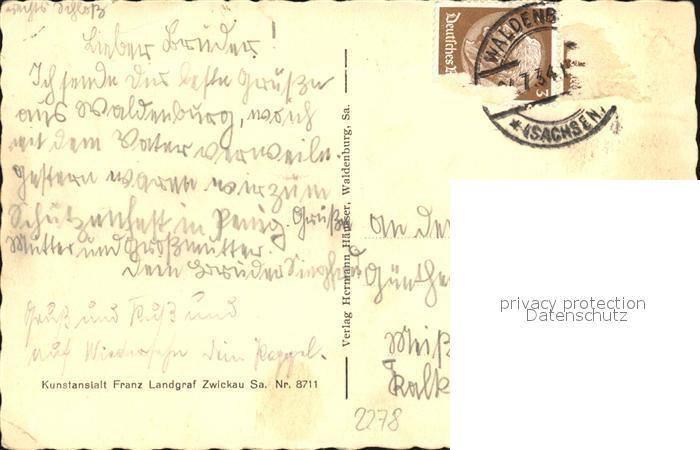 rechts Schloß
Lieber Bruder!
Ich sende Dir beste Grüße
aus Waldenburg, wo ich
mit dem Vater verweile.
Gestern waren wir zum
Schützenfest in Penig. Grüße
Mutter und Großmutter.
Dein Bruder Siegfried
Gruß und Kuß und
auf Wiedersehn Dein
Kunstanstalt Franz Landgraf Zwickau Sa. Nr. 8711
Verlag Hermann Häusser, Waldenburg, Sa.
Deutsches
3
WALDENB
7.34
* (SACHSEN)
An den
Günthe
Meiß
Kalk
2278
privacy protection
Datenschutz